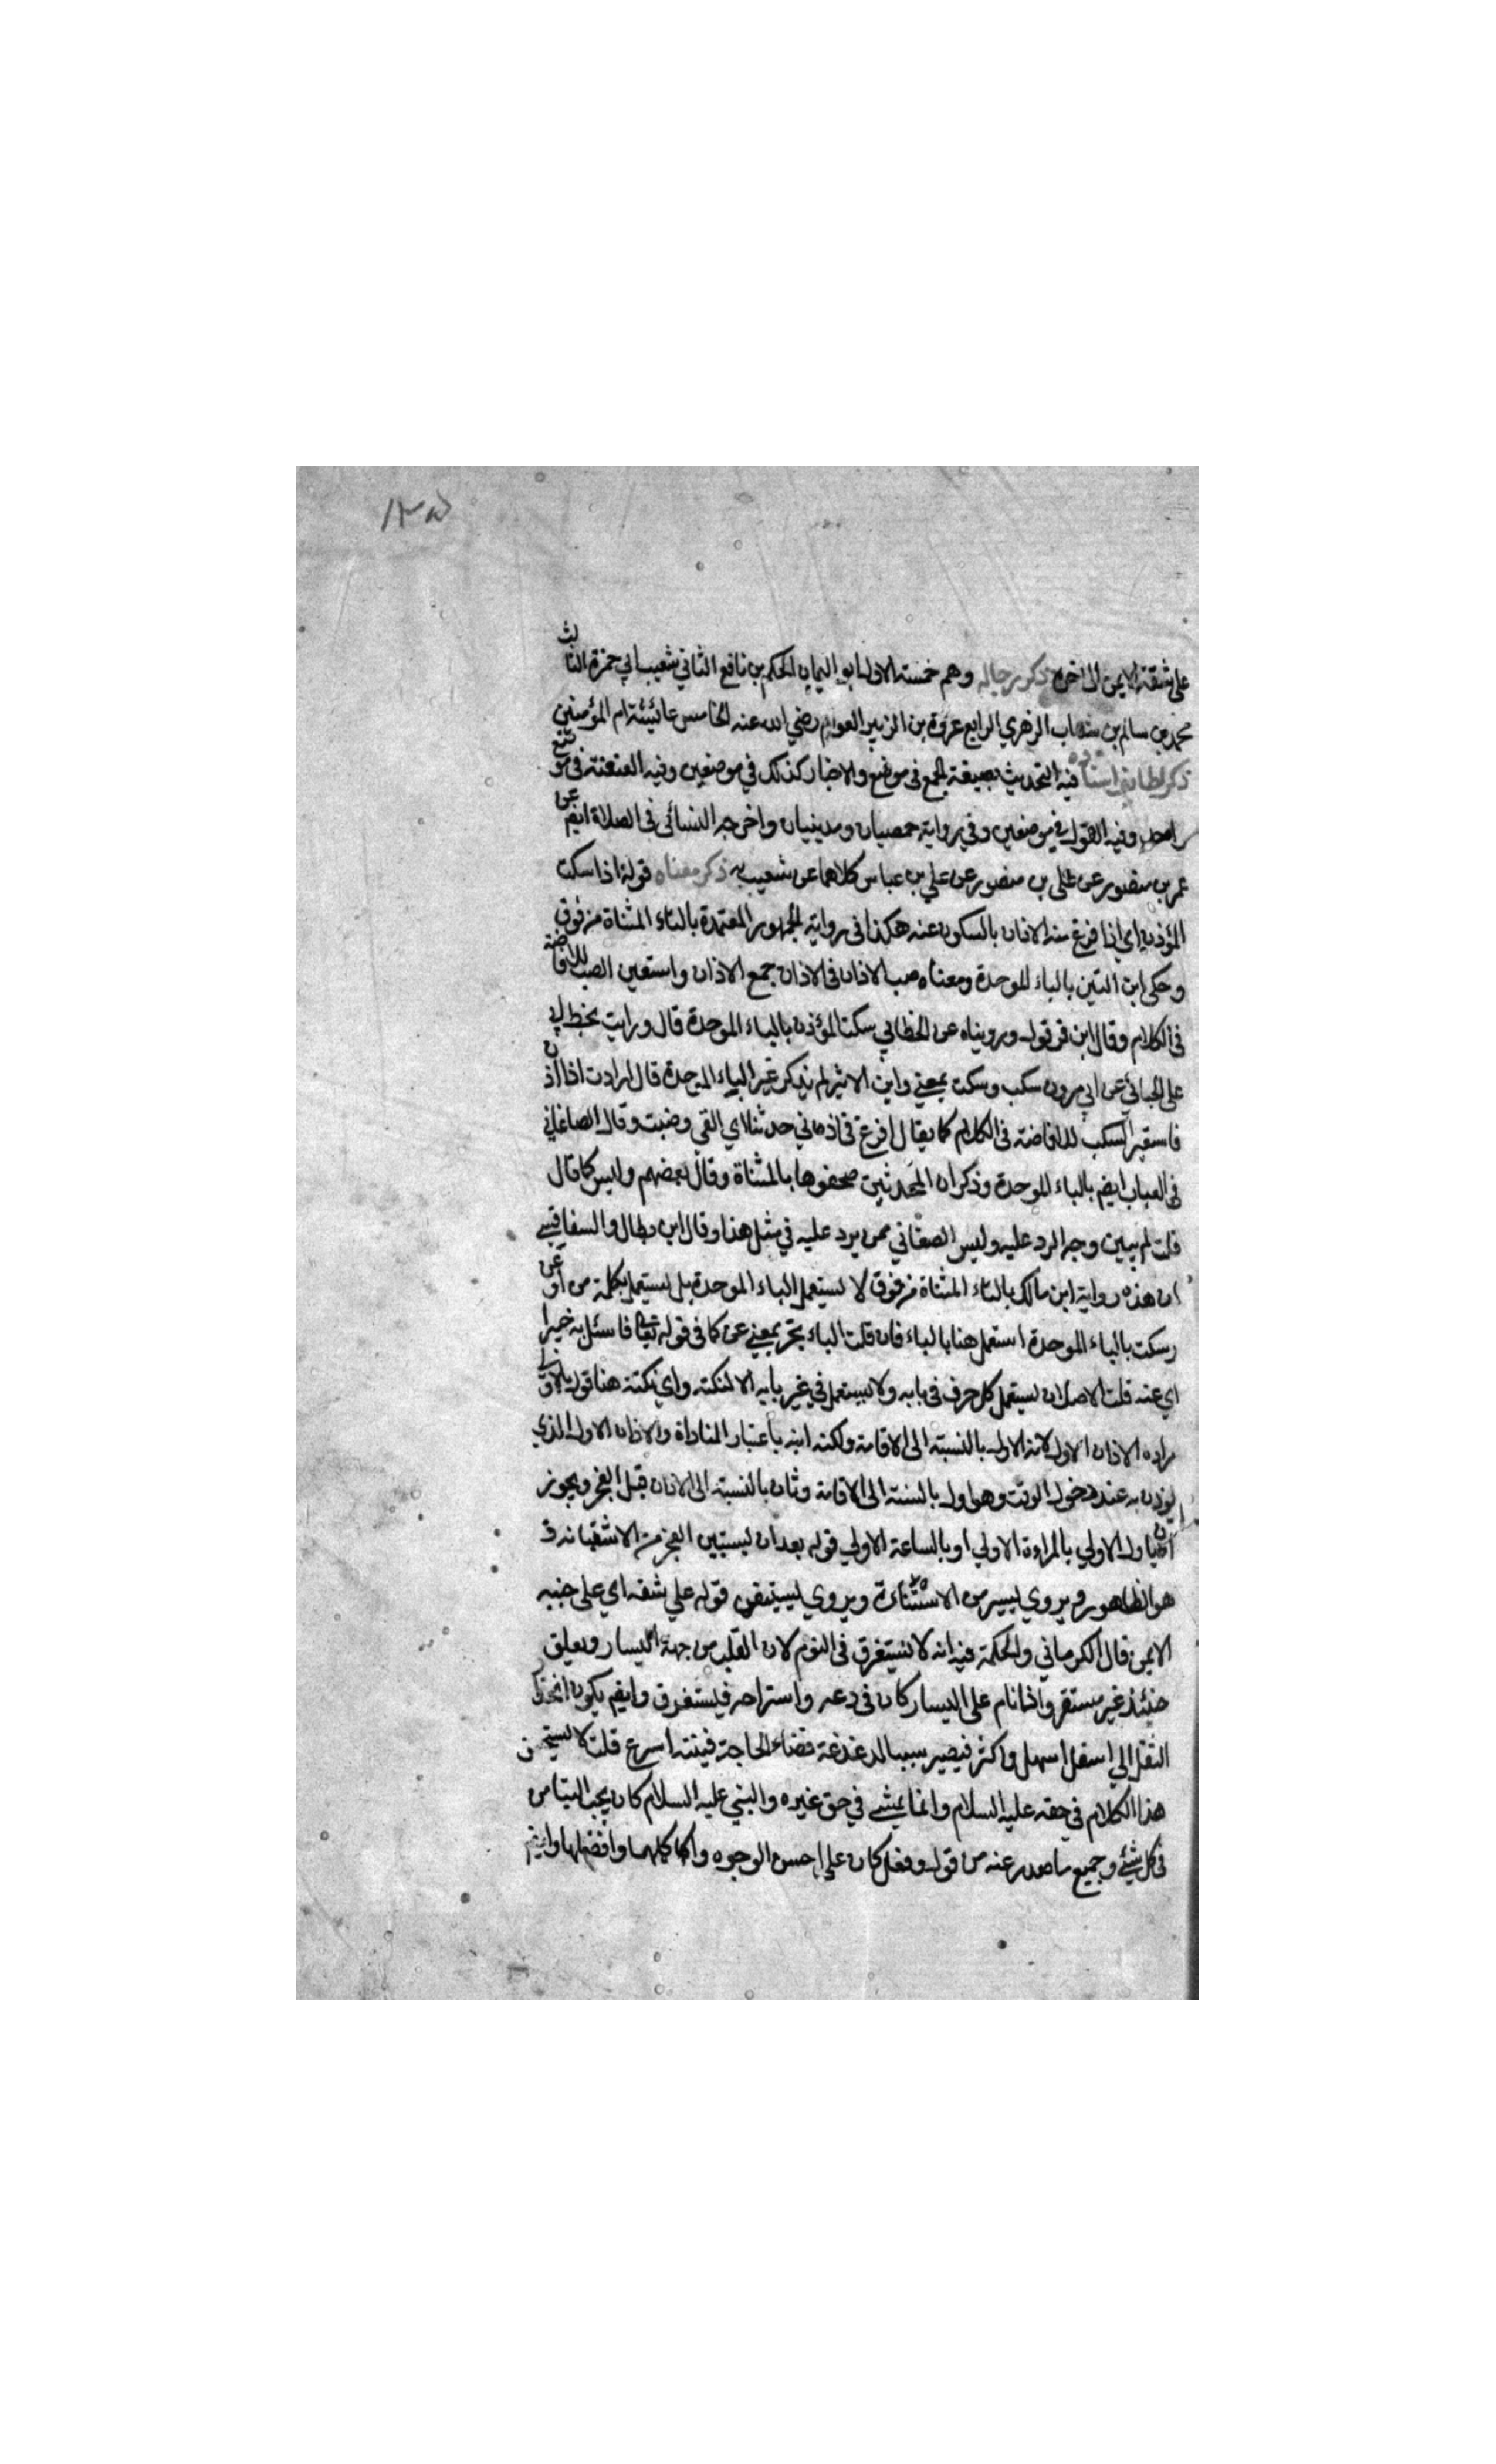 ١٣٥
على شقة الايمن الى اخره ذكر رجاله وهم خمسة الاول ابو اليمان الحكم بن نافع الثاني شعيب ابي حمزة الثالث
محمد بن سالم بن شهاب الزهري الرابع عروة بن الزبير العوام رضي الله عنه الخامس عائشة ام المؤمنين
ذكر لطايف اسناده فيه التحديث بصيغة الجمع في موضع والاخبار كذلك في موضعين وفيه العنعنة في موضع
واحد وفيه القول في موضعين وفي رواية حمصيان ومدينيان واخرجه النسائي في الصلاة ايضم عن
عمر بن منصور عن على بن منصور عن علي بن عباس كلاهما عن شعيب به ذكر معناه قوله اذا سكت
المؤذن اي اذا فرغ منه الاذان بالسكون عنه هكذا في رواية الجمهور المعتمدة بالتاء المثناة من فوق
وحكى ابن التين بالباء الموحدة ومعناه صب الاذان في الاذان جمع الاذان واستعين الصب للافاضة
في الكلام وقال ابن قرقول ورويناه عن الخطابي سكت المؤذن بالباء الموحدة قال ورايت بخط ابي
على الجبائي عن ابي مرون سكب وسكت بمعني وابن الاثير لم يذكر غير الباء الموحدة قال ارادت اذا اذن
فاستعير السكب للافاضة في الكلام كما يقال افرغ في اذماني حدثنا اي القي وضبت وقال الصاغاني
في العباب ايضم بالباء الموحدة وذكر ان المحدثين صحفوها بالمثناة وقال بعضهم وليس كما قال
قلت لم يبين وجه الرد عليه وليس الصغاني ممن يرد عليه في مثل هذا وقال ابن بطال والسفاقسي
ان هذه رواية ابن مالك بالتاء المثناة من فوق لا يستعمل الباء الموحدة بل يستعمل بكلمة من او عن
وسكت بالباء الموحدة استعمل هنا بالباء فان قلت الباء يجئ بمعني عن كما في قوله تعالى فاسئل به خبيرا
اي عنه قلت الاصل ان يستعمل كل حرف في بابه ولا يستعمل في غير بابه الا لنكتة واي نكتة هنا قوله بالاولي
مراده الاذان الاول لانه الاول بالنسبة الى الاقامة ولكنه انثه باعتبار المناداة والاذان الاول الذي
يوذن به عند دخول الوقت وهو اول بالنسبة الى الاقامة وثان بالنسبة الى الاذان قبل الفجر ويجوز
ان ياول الاولي بالمراءة الاولي او بالساعة الاولي قوله بعد ان يستبين الفجر من الاستبانة
هو الظاهور ويروي يستبين من الاستنارة ويروي يستيقن قوله علي شقه اي على جنبه
الايمن قال الكرماني والحكمة فيه انه لا يستغرق في النوم لان القلب من جهة اليسار ويعلق
حنئذ غير مستقر واذا نام على اليسار كان في دعه واستراحه فيستغرق وايضم يكون انحدار
الثقل الي اسفل اسهل واكثر فيصير سببا لدغدغة قضاء الحاجة فينتبه اسرع قلت لا يستحسن
هذا الكلام في حقه عليه السلام وانما يمشي في حق غيره والنبي عليه السلام كان يحب التيامن
في كل شئ وجميع ما صدر عنه من قول وفعل كان على احسن الوجوه واكملها وافضلها وايضم